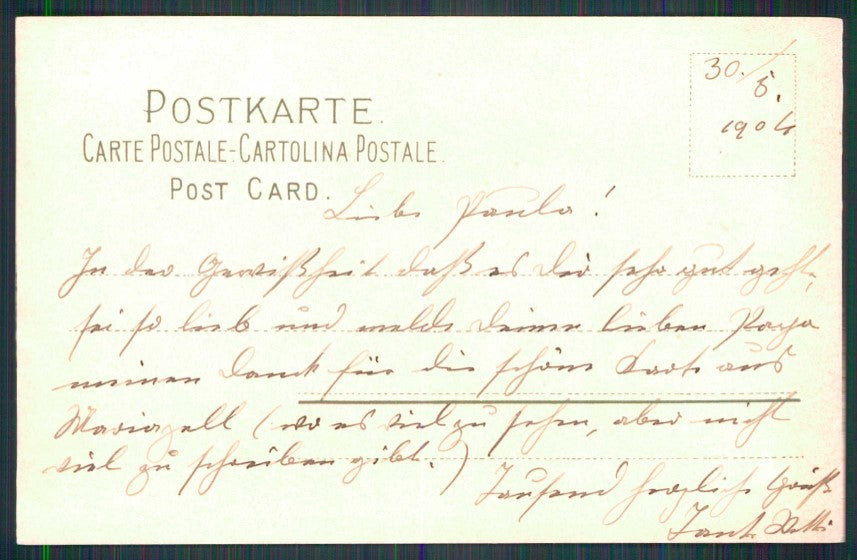 POSTKARTE.
CARTE POSTALE-CARTOLINA POSTALE.
POST CARD.
30./5.
1904
Liebe Paula!
In der Gewißheit daß es Dir sehr gut geht,
sei so lieb und melde Deinem lieben Papa
meinen Dank für die schöne Karte aus
Mariazell (wo es viel zu sehen, aber nicht
viel zu schreiben gibt.)
Tausend herzliche Grüße
Tante